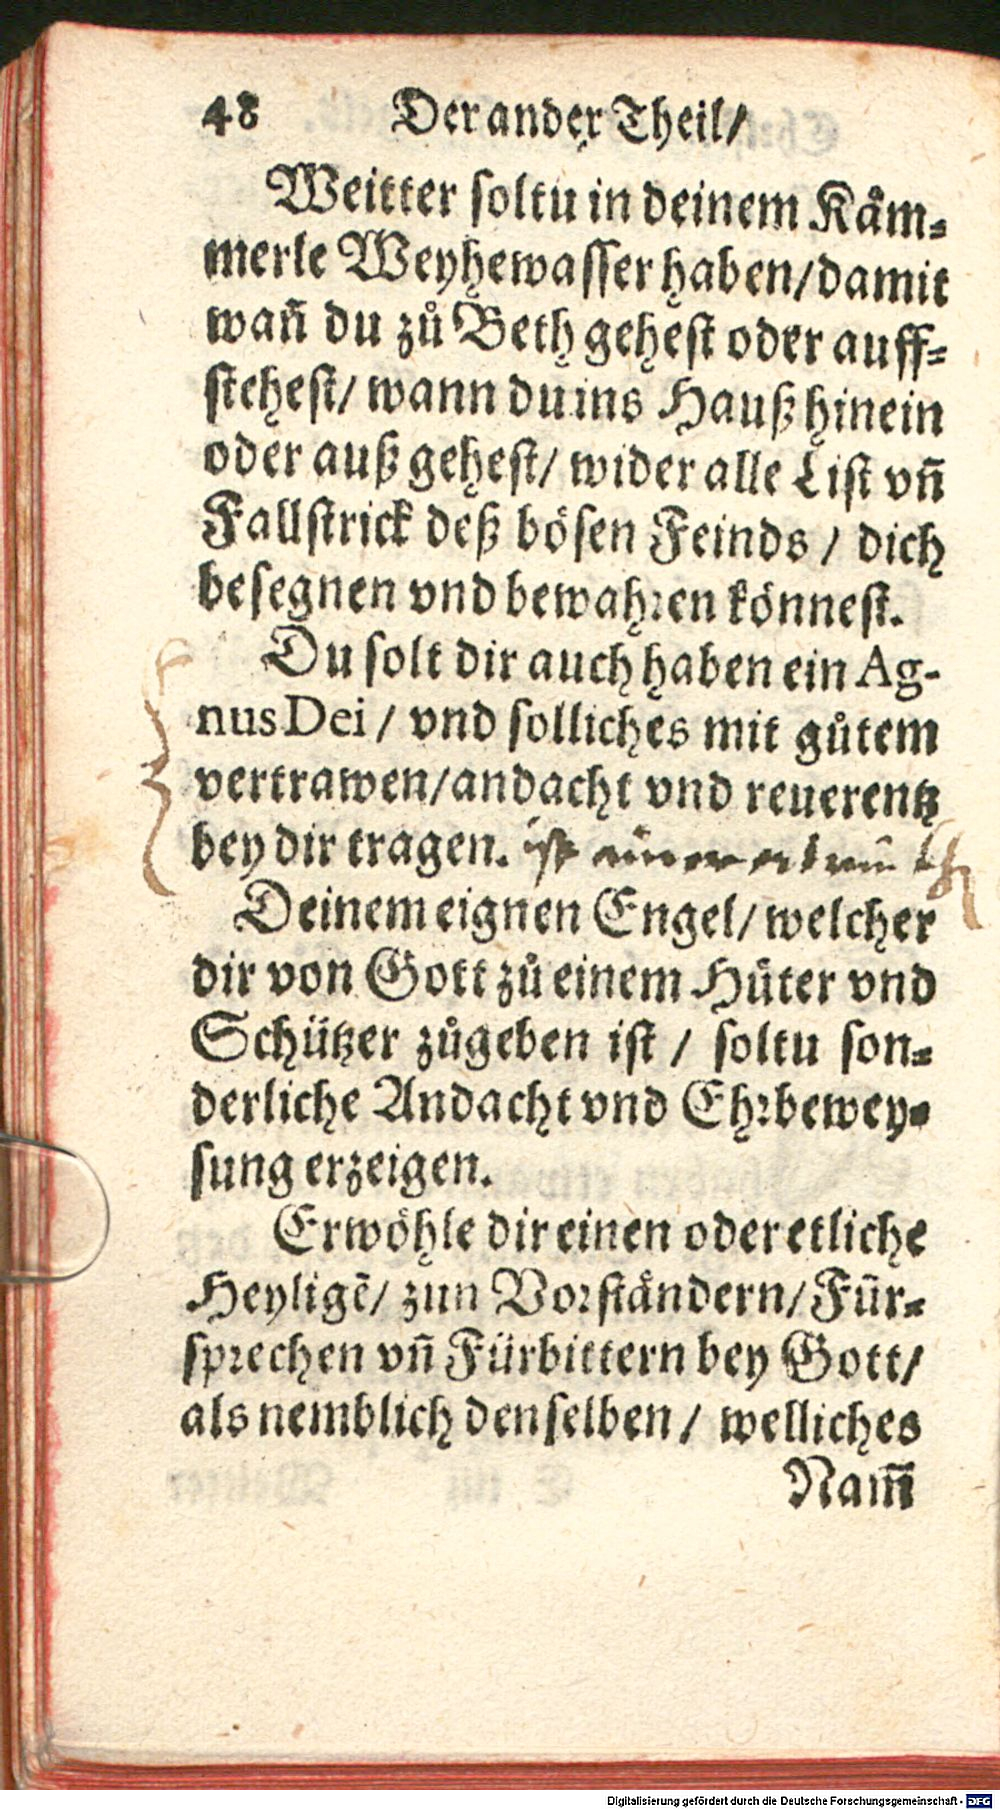 48 Der ander Theil/
Weitter soltu in deinem Kåm-
merle Weyhewasser haben/damit
wañ du zů Beth gehest oder auff-
stehest/ wann du ins Hauß hinein
oder auß gehest/ wider alle List vñ
Fallstrick deß bösen Feinds / dich
besegnen vnd bewahren könnest.
Du solt dir auch haben ein Ag-
nus Dei / vnd solliches mit gůtem
vertrawen/andacht vnd reuerentz
bey dir tragen. ist
Deinem eignen Engel/ welcher
dir von Gott zů einem Hüter vnd
Schützer zůgeben ist / soltu son-
derliche Andacht vnd Ehrbewey-
sung erzeigen.
Erwöhle dir einen oder etliche
Heyligẽ/ zun Vorståndern/ Für-
sprechen vñ Fürbittern bey Gott/
als nemblich denselben / welliches
Nam̃
Digitalisierung gefördert durch die Deutsche Forschungsgemeinschaft - DFG